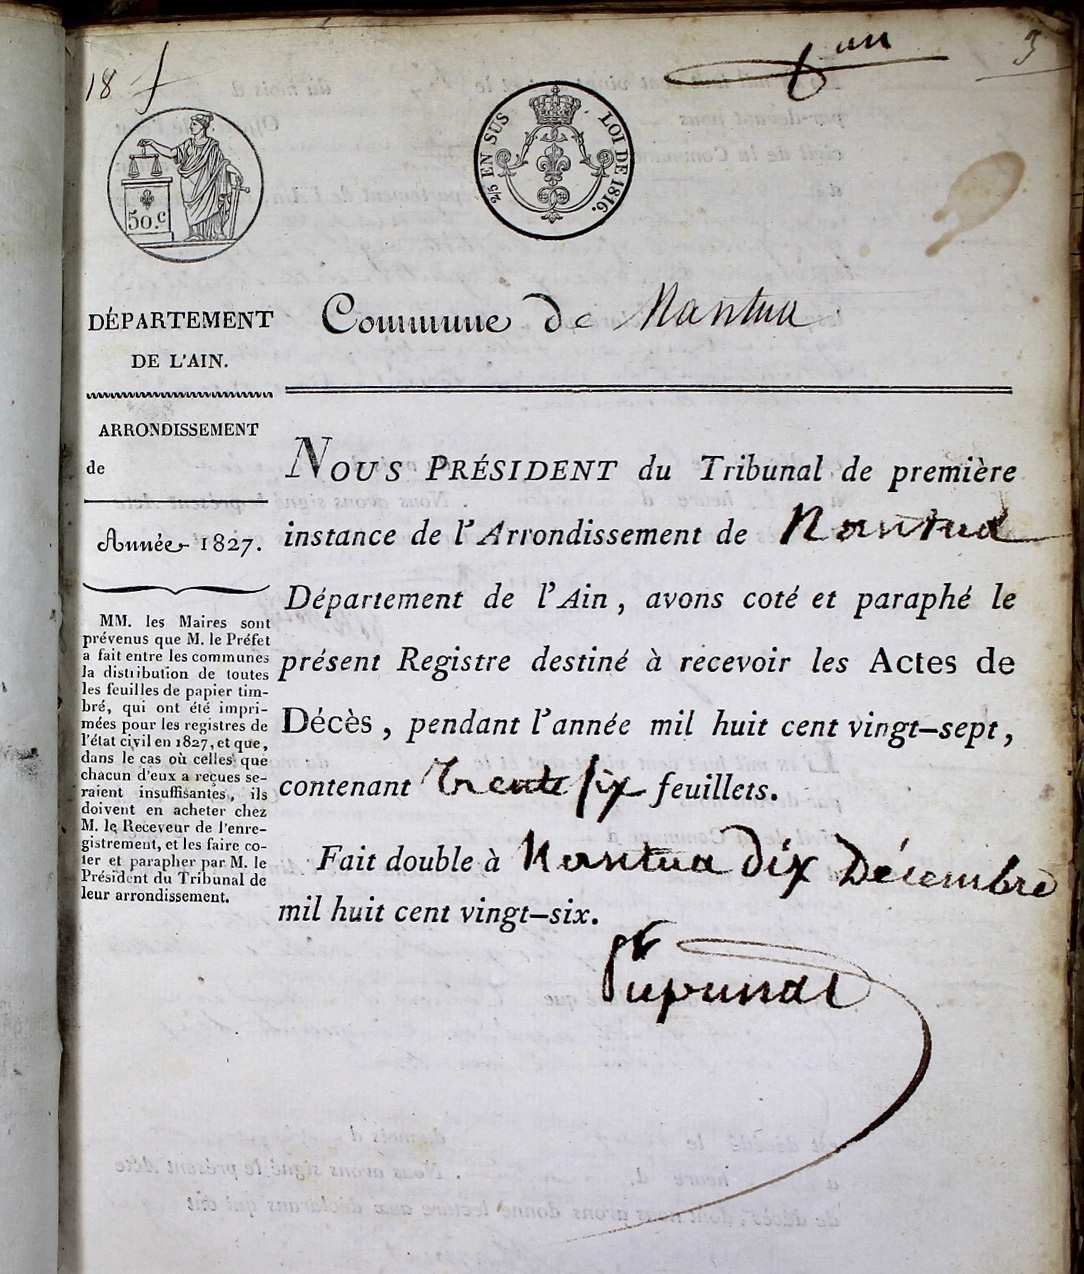 18 f
un
3
50.c
2/5 EN SUS LOI DE 1816.
DÉPARTEMENT
DE L'AIN.
Commune de Nantua
ARRONDISSEMENT
de
Année 1827.
MM. les Maires sont
prévenus que M. le Préfet
a fait entre les communes
la distribution de toutes
les feuilles de papier tim-
bré, qui ont été impri-
mées pour les registres de
l'état civil en 1827, et que,
dans le cas où celles que
chacun d'eux a reçues se-
raient insuffisantes, ils
doivent en acheter chez
M. le Receveur de l'enre-
gistrement, et les faire co-
ter et parapher par M. le
Président du Tribunal de
leur arrondissement.
NOUS PRÉSIDENT du Tribunal de première
instance de l'Arrondissement de Nantua
Département de l'Ain, avons coté et paraphé le
présent Registre destiné à recevoir les Actes de
Décès, pendant l'année mil huit cent vingt-sept,
contenant trente six feuillets.
Fait double à Nantua dix Décembre
mil huit cent vingt-six.